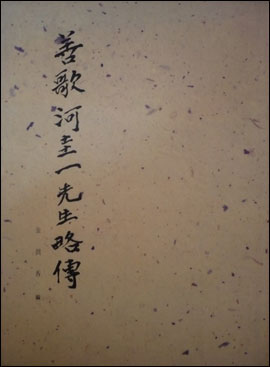 善歌 河圭一先生略傳
金